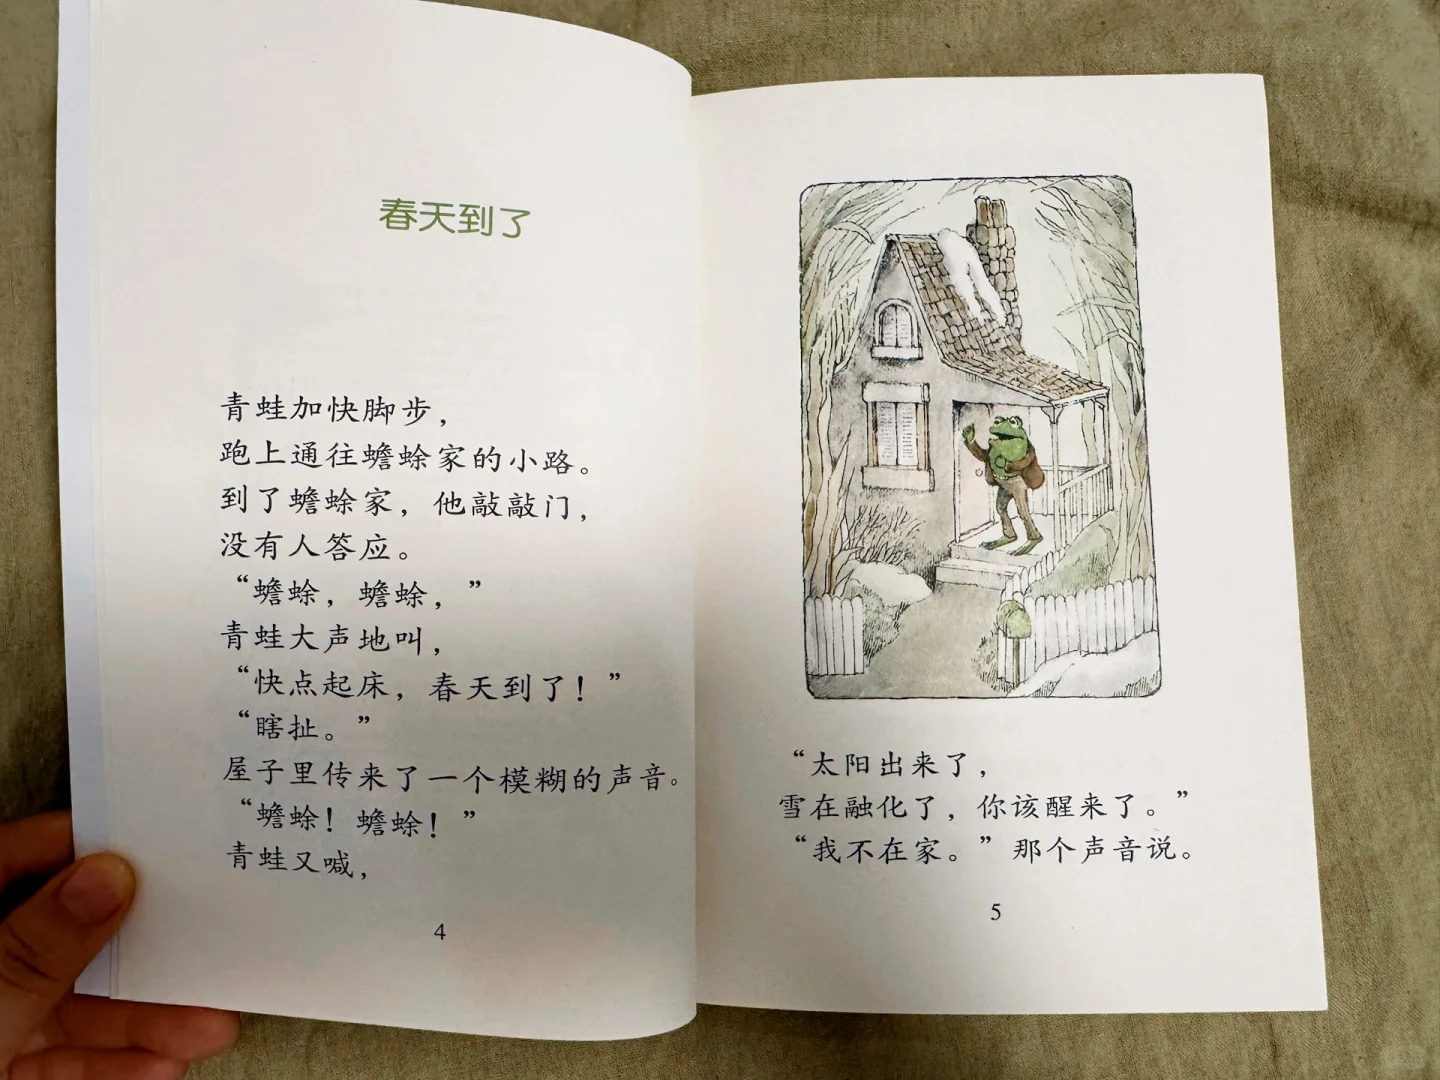 春天到了
青蛙加快脚步，
跑上通往蟾蜍家的小路。
到了蟾蜍家，他敲敲门，
没有人答应。
“蟾蜍，蟾蜍，”
青蛙大声地叫，
“快点起床，春天到了！”
“瞎扯。”
屋子里传来了一个模糊的声音。
“蟾蜍！蟾蜍！”
青蛙又喊，
4
“太阳出来了，
雪在融化了，你该醒来了。”
“我不在家。”那个声音说。
5